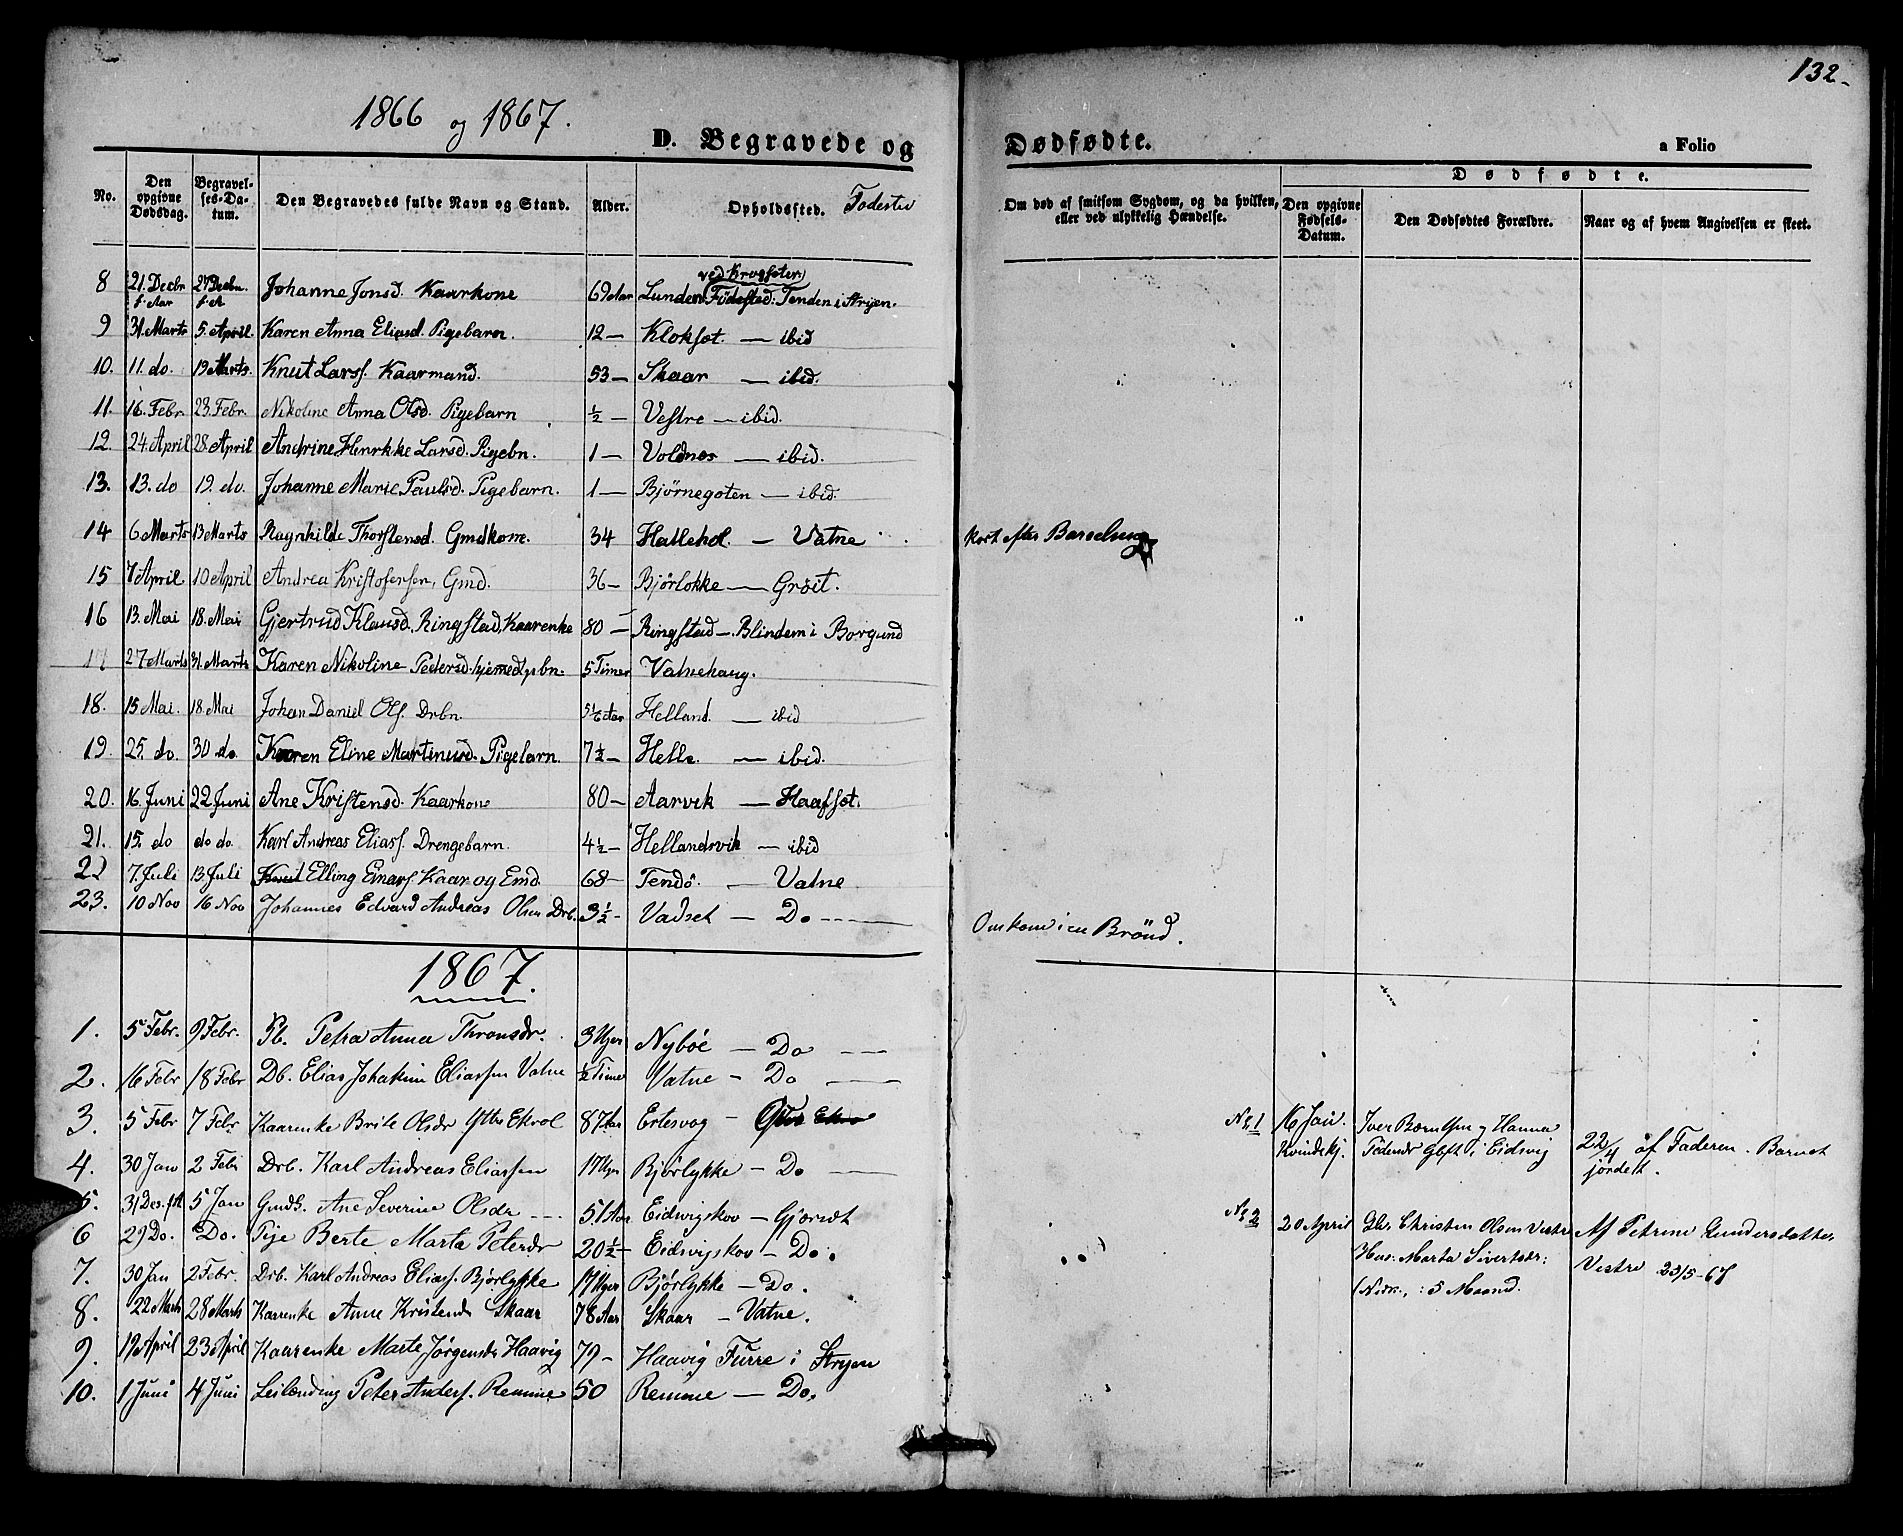 132
1866 og 1867.
D. Begravede og Dødfødte. a Folio
No. Den opgivne Dødsdag. Begravelses-Datum. Den Begravedes fulde Navn og Stand. Alder. Opholdssted. Fødested Om død af smitsom Sygdom, og da hvilken, eller ved ulykkelig Hændelse. Dødfødte. Den opgivne Fødsels-Datum. Den Dødfødtes Forældre. Naar og af hvem Angivelsen er skeet.
ved Krogsæter
8 21. Decbr f. Aar 27 Decbr. f. A Johanne Jonsd. Kaarkone 69 Aar Lunden Fødested: Tenden i Stryen.
9 31. Marts 5. April Karen Anna Eliasd. Pigebarn. 12 — Kloksæt. — ibid
10. 11. do. 19 Marts. Knut Larss. Kaarmand. 53 — Skaar — ibid.
11. 16. Febr 23. Febr. Nikoline Anna Olsd. Pigebarn ½ — Vestre — ibid.
12. 24. April 28. April Andrine Henrikke Larsd. Pigebn. 1 — Voldnes — ibid.
13. 13. do 19. do. Johanne Marie Paulsd. Pigebarn. 1 — Bjørnegoten — ibid.
14 6 Marts 13 Marts Ragnhilde Thorstensd. Gmdkone. 34 Hallehol. — Vatne kort efter Barselseng
15 7 April 10 April Andrea Kristofersen, Gmd. 36 — Bjørlokke — Gröit.
16 13. Mai 18. Mai Gjertrud Klausd. Ringstad, Kaarenke 80 — Ringstad — Blindem i Borgund
17 27 Marts 31. Marts Karen Nikoline Pedersd. hjemedpbn. 5 Timer Vatnehaug.
18. 15 Mai. 18. Mai Johan Daniel Ols. Drbn. 5½ Aar Helland. — ibid
19. 25. do. 30 do Karen Eline Martinusd. Pigebarn. 7½ — Helle. — ibid.
20. 16. Juni 22 Juni Ane Kristensd. Kaarkone 80 — Aarvik — Haafsæt.
21. 15. do do do. Karl Andreas Eliass. Drengebarn. 4½ — Hellandsvik — ibid
22 7. Juli 13. Juli Knut Elling Einars. Kaar og Emd. 68 — Tendö. — Vatne
23. 10 Nov 16 Nov Johannes Edvard Andreas Olsen Drb. 3½ — Vadset — Do Omkom i en Brönd.
1867.
1. 5 Febr. 9 Febr. Pb. Petra Anna Thronsdr. 3 Uger Nybøe — Do
2. 16 Febr 18 Febr Db. Elias Johakim Eliassen Vatne ½ Time Vatne — Do
3. 5 Febr 7 Febr Kaarenke Brite Olsdr Ytter Ekrol 87 Aar Ertesvog — Ytter Ekro No 1 16 Jan. Kvindekj. Iver Berntsen og Hanna Pedersdr Gbft i Eidsvig 22/4 af Faderen. Barnet jordet.
4. 30 Jan 2 Febr Drb. Karl Andreas Eliassen 17 Uger Bjørlykke — Do
5. 31 Des. f.A 5 Jan Gmds. Ane Severine Olsdr 51 Aar Eidsvigskov — Gjærset No 2 20 April Gbr. Christen Olsen Vestre Hus. Marta Sivertsdr: 5 Maand. Af Petrine Gundersdatter Vestre 23/5-67
6 29 Do. Do. Pige Berte Marta Petersdr 20½ — Eidsvigskov — Do.
7. 30 Jan 2 Febr. Drb. Karl Andreas Eliass. Bjørlykke 17 Uger Bjørlykke — Do.
8. 22 Marts 28 Marts Kaarenke Anne Kristensdr Skaar 78 Aar Skaar — Vatne.
9. 19 April 23 April Kaarenke Marte Jørgensdr Haavig 79 — Haavig Furre i Stryen
10. 1 Juni 4 Juni Leilænding Peter Anders. Remme 50 Remme — Do.